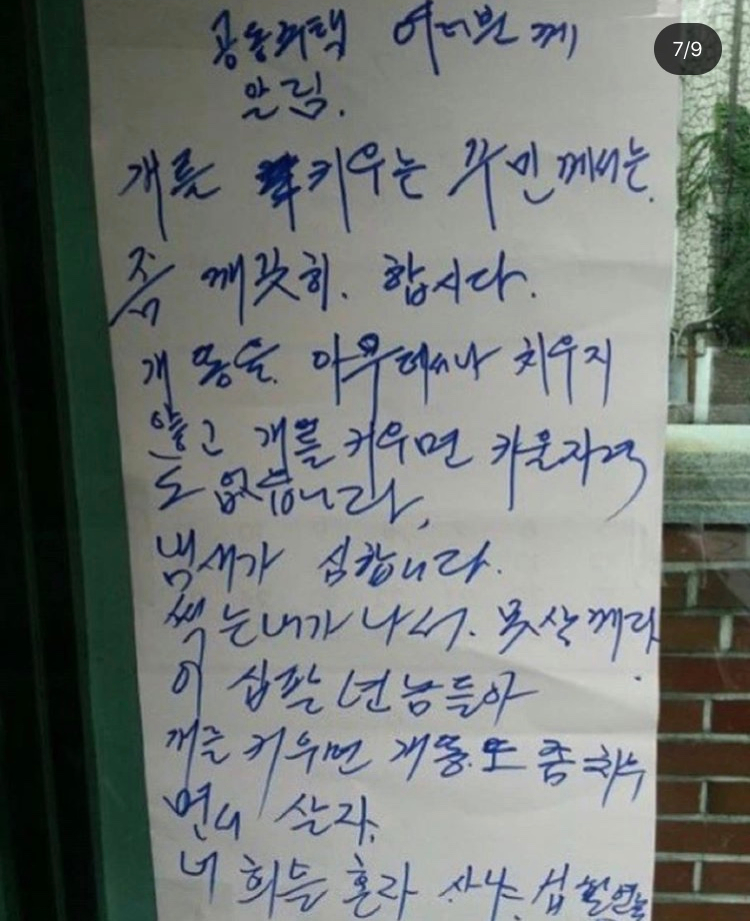 7/9
공동주택 여러분께
알림.
개를 키우는 주민께서는.
좀 깨끗히. 합시다.
개똥을. 아무데서나 치우지
않고 개를 키우면 키울자격
도 없습니다,
냄새가 심합니다.
썩는내가 나서. 못살께다.
이 십팔 년놈들아
개를 키우면 개똥도 좀 치우
면서 살자.
너희들 혼자 사냐. 십팔년놈